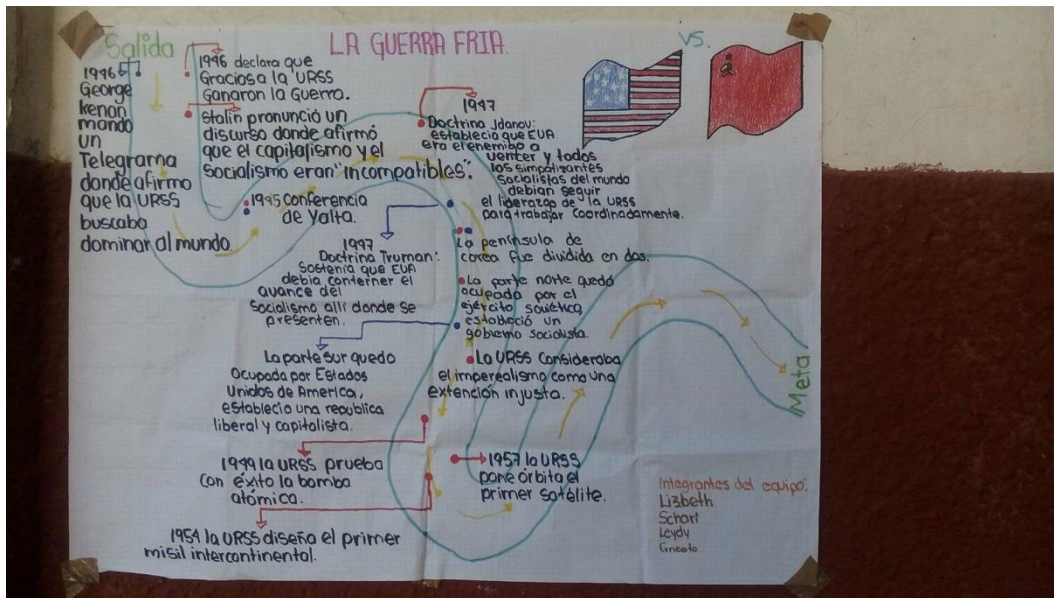 Salida
LA GUERRA FRIA.
VS.
1946
George
kenan
mando
un
Telegrama
donde afirmo
que la URSS
buscaba
dominar al mundo
1946 declara que
Gracias a la URSS
Ganaron la Guerra.
Stalin pronunció un
discurso donde afirmó
que el capitalismo y el
Socialismo eran "incompatibles".
1945 Conferencia
de Yalta.
1947
Doctrina Jdanov:
establecia que EUA
era el enemigo a
vencer y todos
los simpatizantes
socialistas del mundo
debian seguir
el liderazgo de la URSS
para trabajar coordinadamente.
1947
Doctrina Truman:
Sostenia que EUA
debia conterner el
avance del
Socialismo alli donde se
presenten.
La península de
corea fue dividida en dos.
La parte norte quedó
ocupada por el
ejército soviético,
estableció un
gobierno socialista.
La parte sur quedo
Ocupada por Estados
Unidos de America,
establecio una republica
liberal y capitalista.
La URSS Consideraba
el imperealismo como una
extención injusta.
1949 la URSS prueba
con éxito la bomba
atómica.
1957 la URSS
pone órbita el
primer satélite.
1954 la URSS diseña el primer
misil intercontinental.
Meta
Integrantes del equipo:
Lizbeth
Schari
Leydy
Ernesto